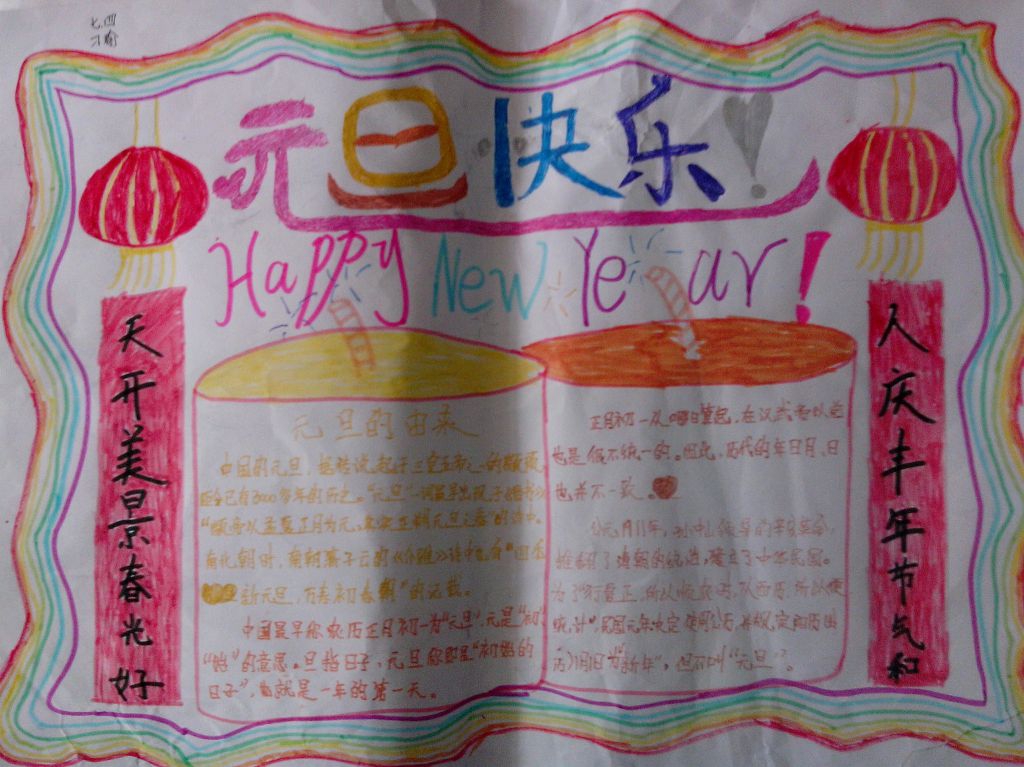 七.四
元旦快乐!
Happy New Year!
天开美景春光好
人庆丰年节气和
元旦的由来
中国的元旦，据传说起于三皇五帝之一的颛顼，
距今已有3000多年的历史。"元旦"一词最早出现于《晋书》:
"颛帝以孟夏正月为元，其实正朔元旦之春"的诗中。
南北朝时，南朝萧子云的《介雅》诗中也有"四季
新元旦，万寿初春朝"的记载。
中国最早称农历正月初一为"元旦"，元是"初"
"始"的意思。旦指日子，元旦合称即是"初始的
日子"，也就是一年的第一天。
正月初一从哪日算起，在汉武帝以前
也是很不统一的。因此，历代的年月日、日
也并不一致。
公元1911年，孙中山领导的辛亥革命
推翻了清朝的统治，建立了中华民国。
为了"行夏正，所以顺农时，从西历，所以便
统计"，民国元年决定使用公历，并规定阳历
1月1日为"新年"，但不叫"元旦"。